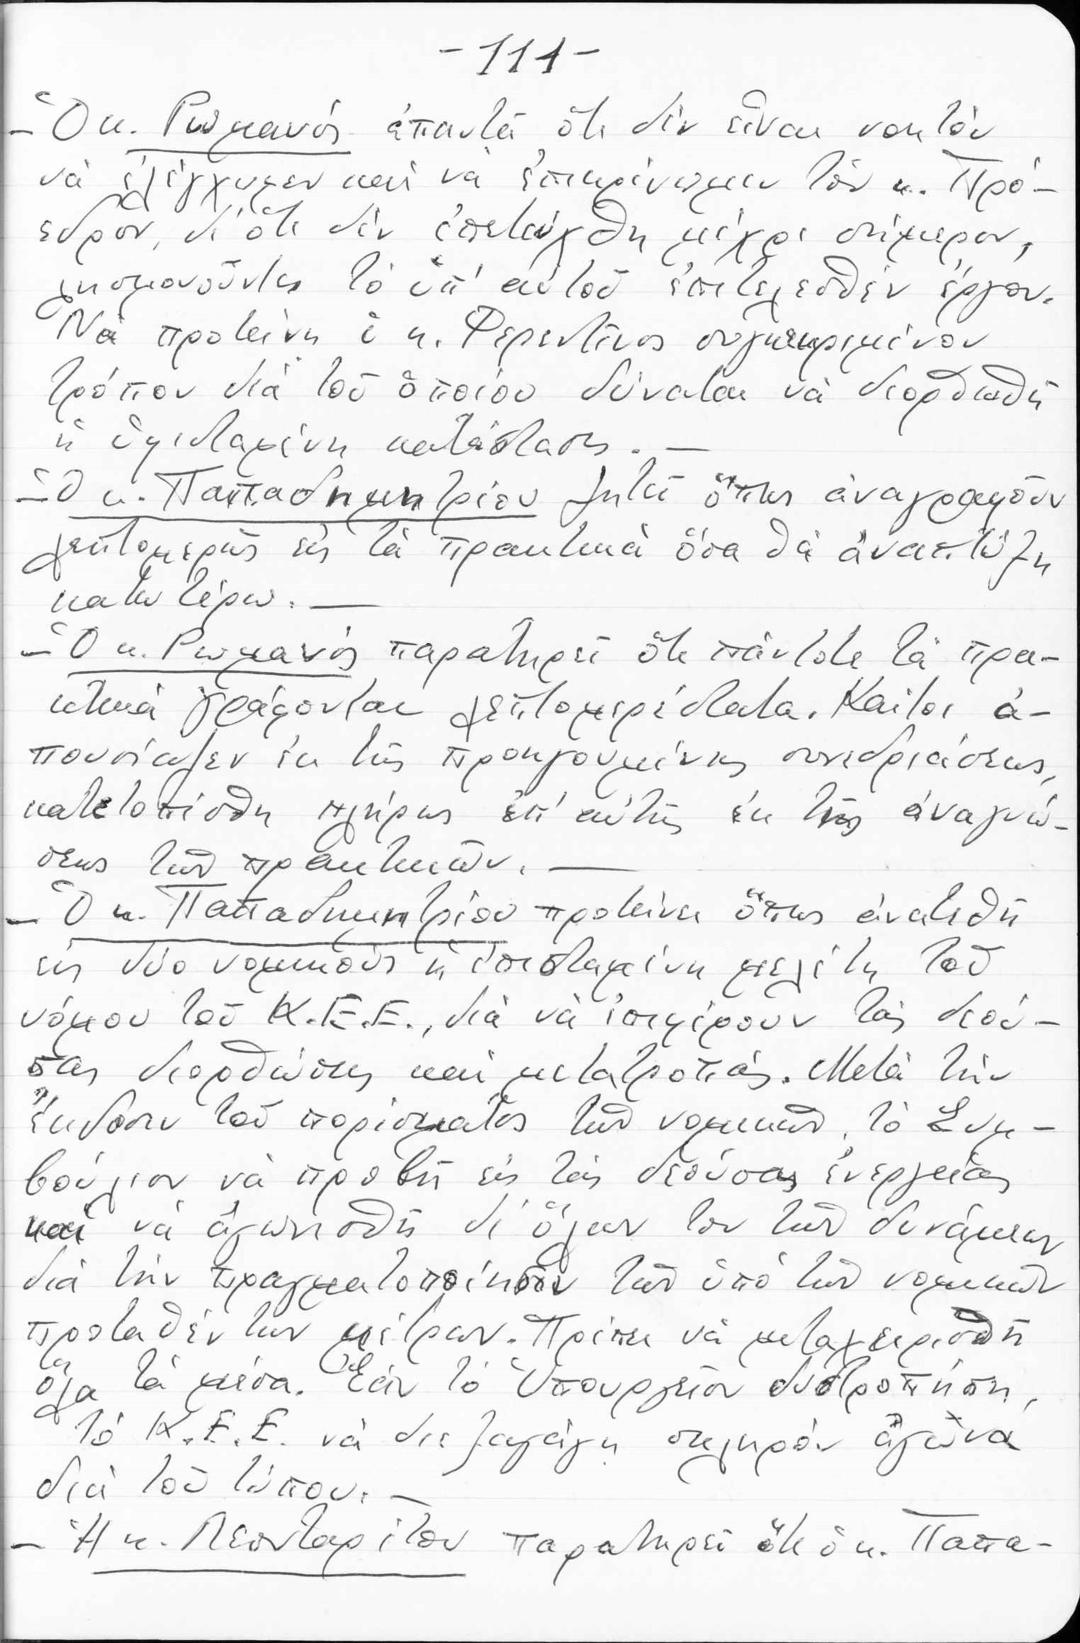 -111-
- Ὁ κ. Ρωμανός ἀπαντᾶ ὅτι δέν εἶναι νοητόν
νά ἐλέγχωμεν καί νά ἐπικρίνωμεν τόν κ. Πρό-
εδρον, δι' ὅτι δέν ἐπετεύχθη μέχρι σήμερον,
λησμονοῦντες τό ὑπ' αὐτοῦ ἐπιτελεσθέν ἔργον.
Νά προτείνη ὁ κ. Φερεντῖνος συγκεκριμένον
τρόπον διά τοῦ ὁποίου δύναται νά διορθωθῆ
ἡ ὑφισταμένη κατάστασις. —
- Ὁ κ. Παπαδημητρίου ζητεῖ ὅπως ἀναγραφοῦν
λεπτομερῶς εἰς τά πρακτικά ὅσα θά ἀναπτύξη
κατωτέρω. —
- Ὁ κ. Ρωμανός παρατηρεῖ ὅτι πάντοτε τά πρα-
κτικά γράφονται λεπτομερέστατα. Καίτοι ἀ-
πουσίαζεν ἐκ τῆς προηγουμένης συνεδριάσεως,
κατετοπίσθη πλήρως ἐπ' αὐτῆς ἐκ τῆς ἀναγνώ-
σεως τῶν πρακτικῶν. —
- Ὁ κ. Παπαδημητρίου προτείνει ὅπως ἀνατεθῆ
εἰς δύο νομικούς ἡ ἐπισταμένη μελέτη τοῦ
νόμου τοῦ Κ.Ε.Ε., διά νά ἐπιφέρουν τάς δεού-
σας διορθώσεις καί μετατροπάς. Μετά τήν
ἔκδοσιν τοῦ πορίσματος τῶν νομικῶν, τό Συμ-
βούλιον νά προβῆ εἰς τάς δεούσας ἐνεργείας
καί νά ἀγωνισθῆ δι' ὅλων του τῶν δυνάμεων
διά τήν πραγματοποίησιν τῶν ὑπό τῶν νομικῶν
προταθέντων μέτρων. Πρέπει νά μεταχειρισθῆ
ὅλα τά μέσα. Ἐάν τό Ὑπουργεῖον δυστροπήση,
τό Κ.Ε.Ε. νά διεξαγάγη σκληρόν ἀγῶνα
διά τοῦ τύπου. —
- Ἡ κ. Λεονταρίτου παρατηρεῖ ὅτι ὁ κ. Παπα-